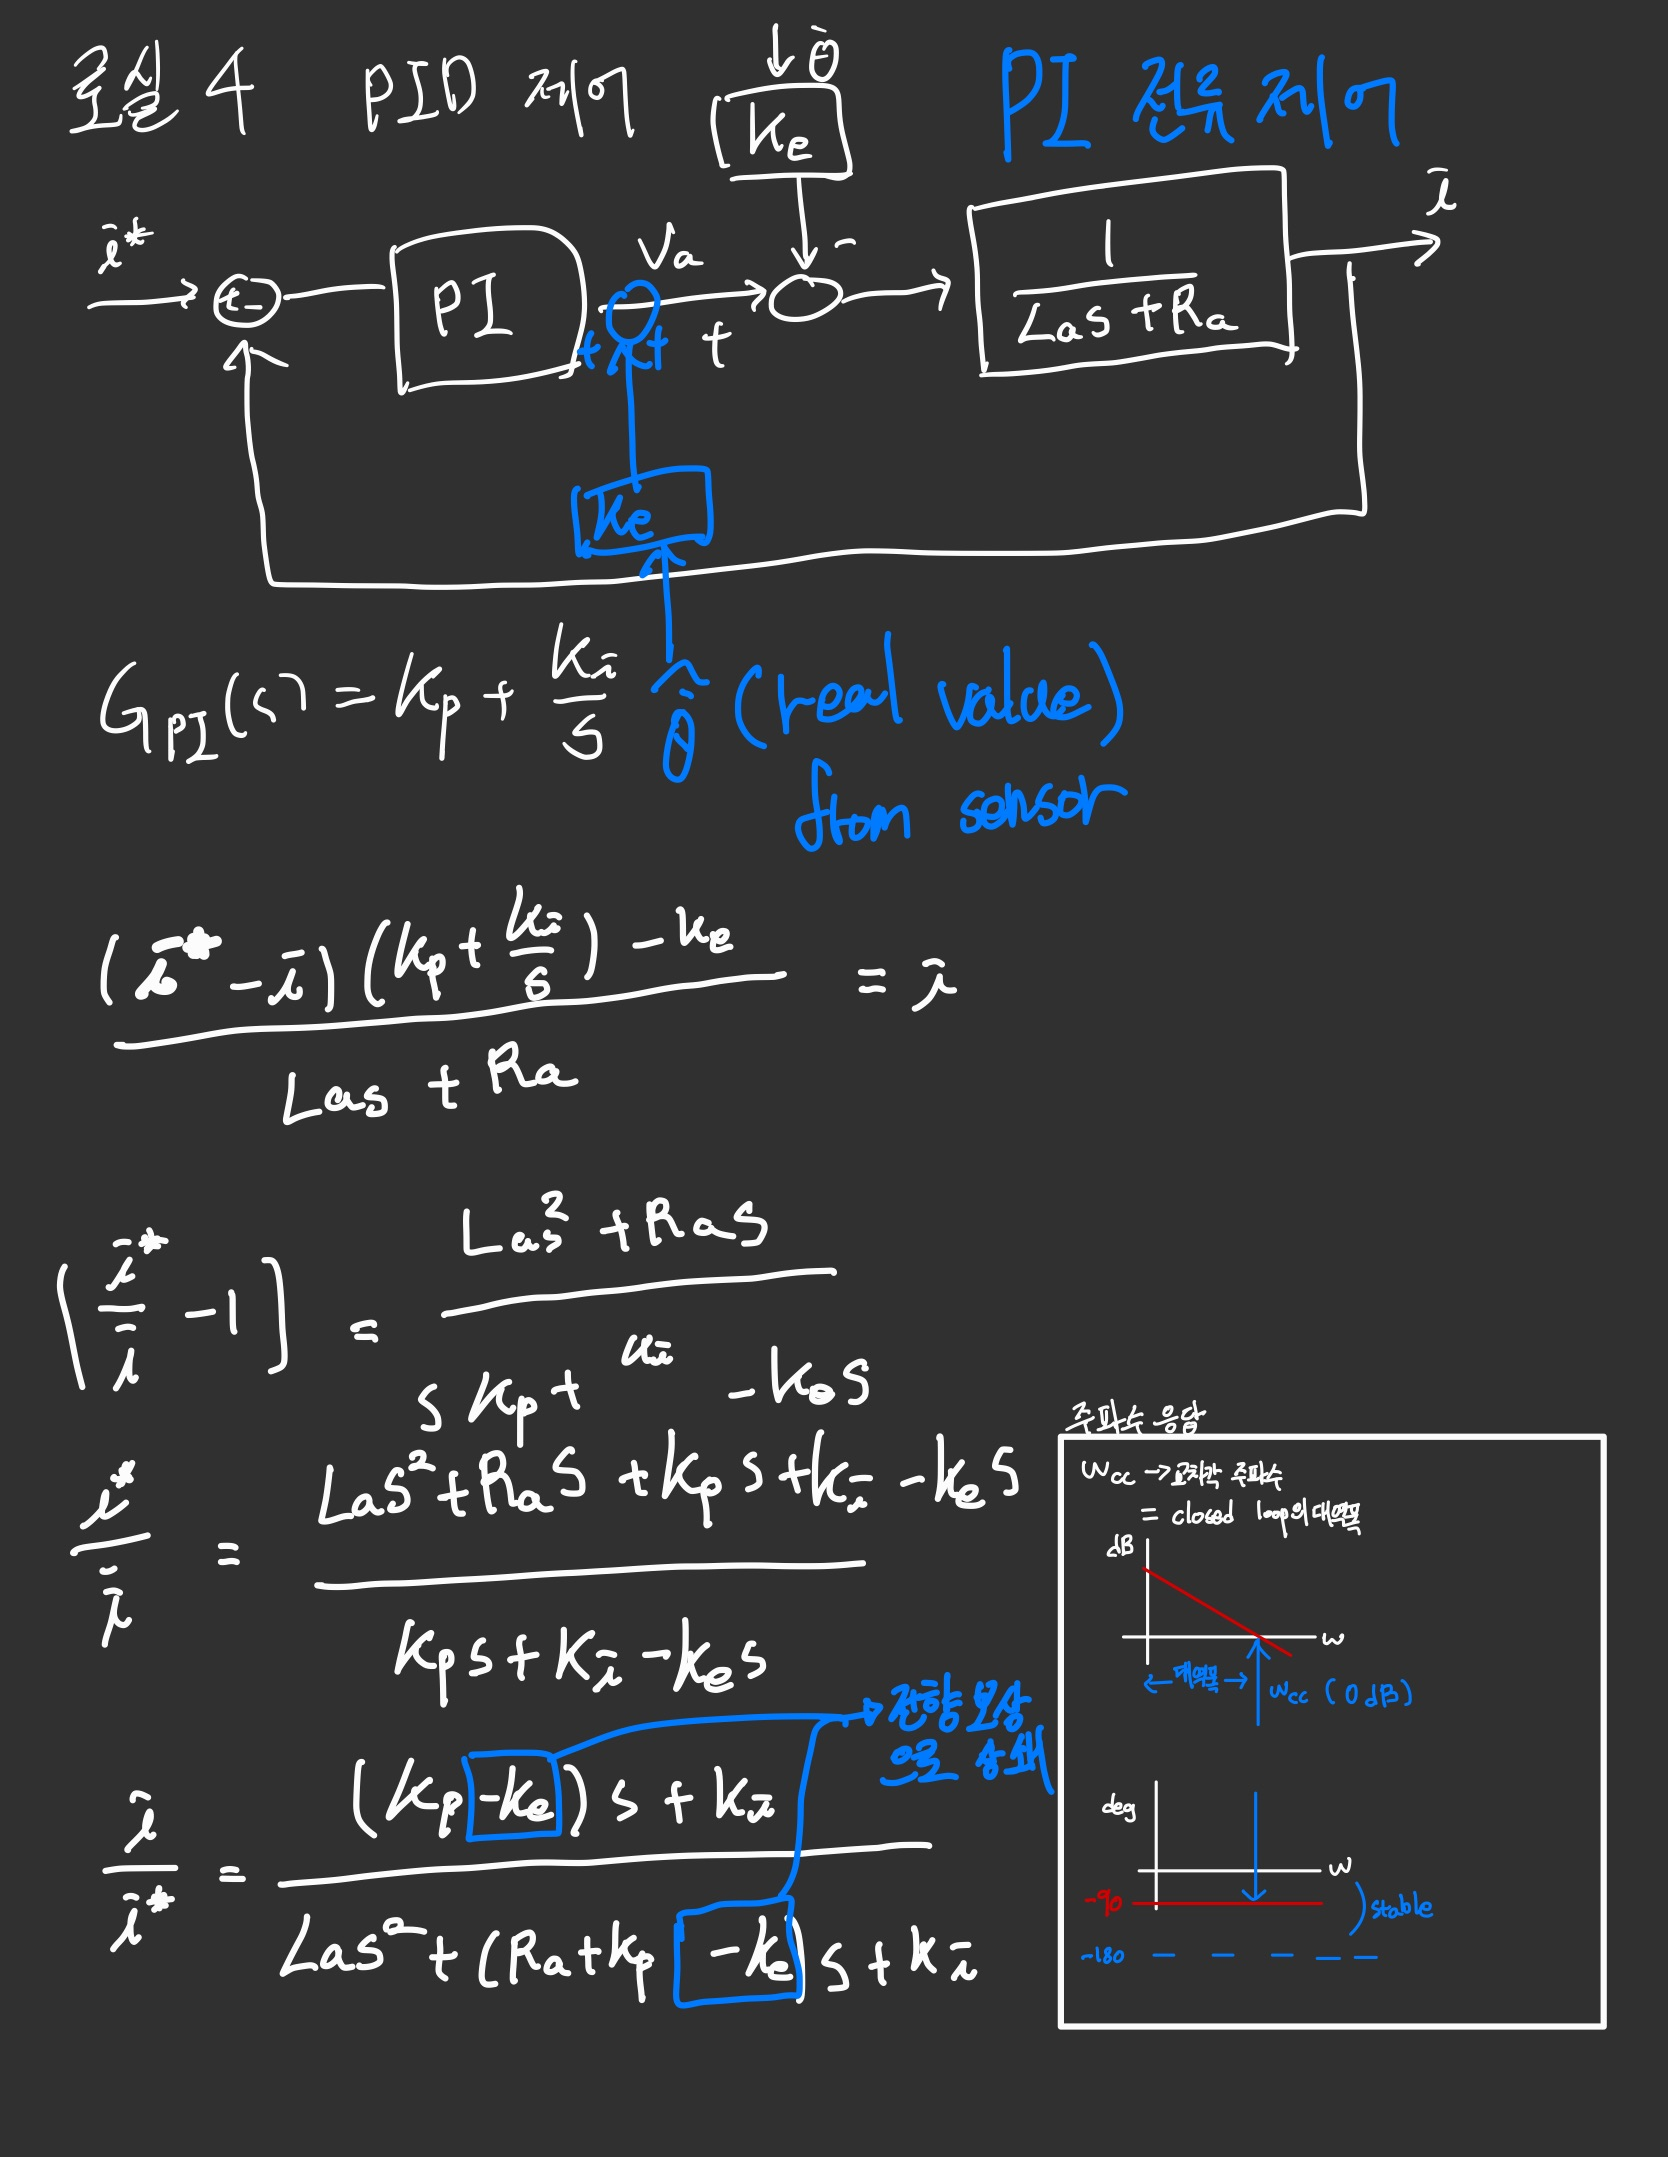 로실 4 PID 제어
PI 전류 제어
↓ θ̇
Ke
i* → + - PI Va + - 1 / (Las + Ra) → i
+ +
Ke
G_PI(s) = Kp + Ki/s
θ̇^ (real value)
from sensor
(i* - i)(Kp + Ki/s) - Ke / (Las + Ra) = i
[i*/i - 1] = (Las² + Ras) / (sKp + Ki - Kes)
i*/i = (Las² + Ras + Kps + Ki - Kes) / (Kps + Ki - Kes)
→ 전향 보상
으로 상쇄
i/i* = ((Kp - Ke)s + Ki) / (Las² + (Ra + Kp - Ke)s + Ki)
주파수 응답
Wcc → 교차각 주파수
= closed loop의 대역폭
dB
w
← 대역폭 → Wcc (0dB)
deg
w
-90
stable
-180